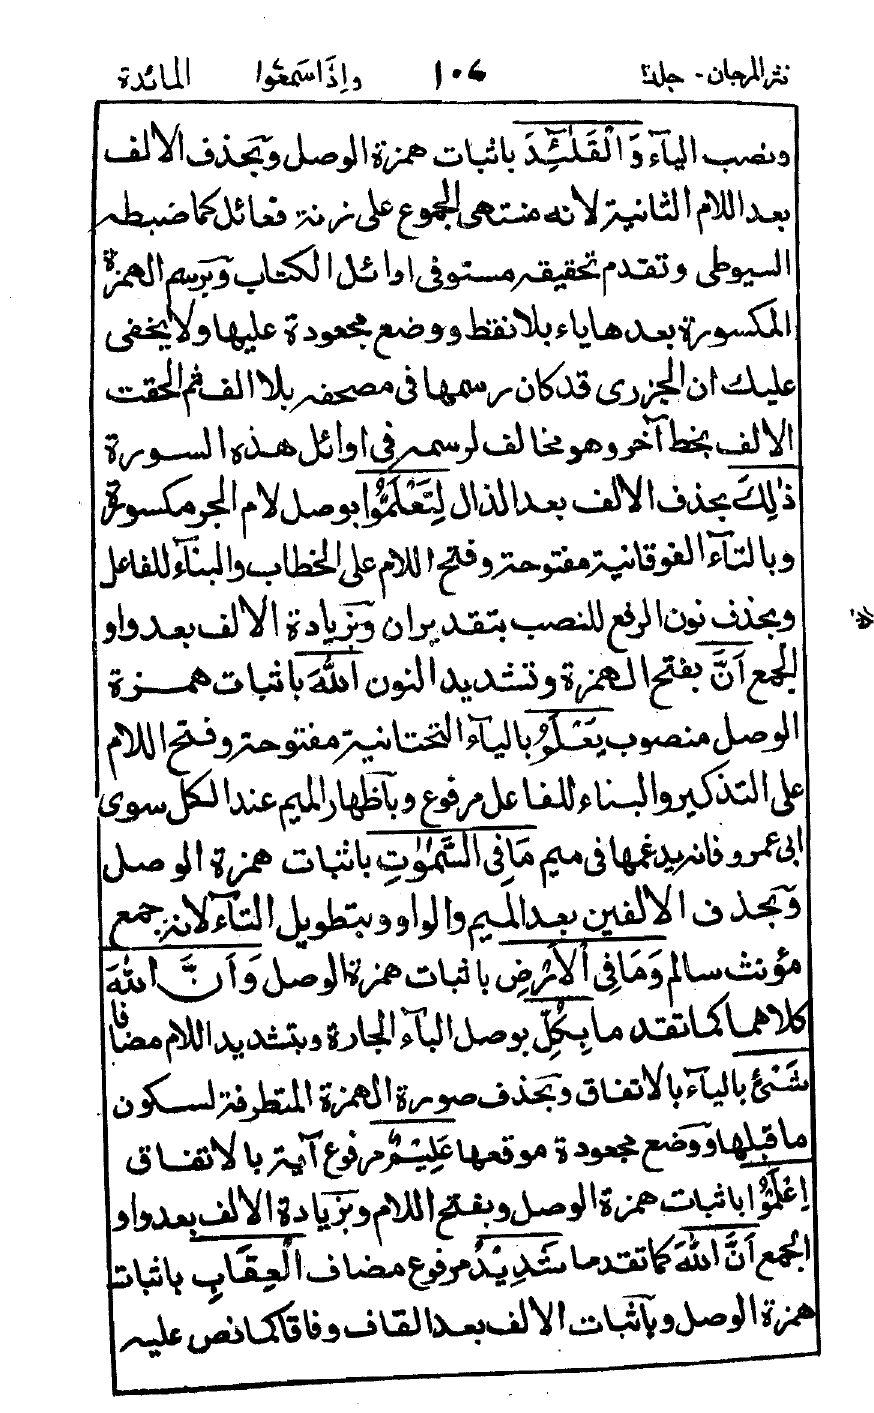 نثر المرجان - جلد٢ ١٠٤ وَاِذَا سَمِعُوا المائدة
ونصب الياۤء وَالْقَلٰۤئِدَ باثبات همزة الوصل وَبحذف الالف
بعد اللام الثانية لانه منتهى الجموع على زنة فعائل كما ضبطه
السيوطى وتقدم تحقيقه مستوفى اوائل الكتاب وَبرسم الهمزة
المكسورة بعدها ياء بلا نقط ووضع مجعودة عليها ولا يخفى
عليك ان الجزرى قد كان رسمها فى مصحفه بلا الف ثم الحقت
الالف بخط آخر وهو مخالف لرسمه فى اوائل هذه السورة
ذٰلِكَ بحذف الالف بعد الذال لِتَعْلَمُوْا بوصل لام الجر مكسورة
وبالتاۤء الفوقانية مفتوحة وفتح اللام على الخطاب والبناۤء للفاعل
وبحذف نون الرفع للنصب بتقدير ان وَبزيادة الالف بعد واو
الجمع اَنَّ بفتح الهمزة وتشديد النون اللّٰهَ باثبات همزة
الوصل منصوب يَعْلَمُ بالياۤء التحتانية مفتوحة وفتح اللام
على التذكير والبناء للفاعل مرفوع وباظهار الميم عند الكل سوى
ابى عمرو فانه يدغمها فى ميم مَا فِى السَّمٰوٰتِ باثبات همزة الوصل
وَبحذف الالفين بعد الميم والواو وبتطويل التاۤء لانه جمع
مؤنث سالم وَمَا فِى الْاَرْضِ باثبات همزة الوصل وَاَنَّ اللّٰهَ
كلاهما كما تقدما بِكُلِّ بوصل الباۤء الجارة وبتشديد اللام مضافا
شَىْءٍ بالياۤء بالاتفاق وبحذف صورة الهمزة المتطرفة لسكون
ما قبلها ووضع مجعودة موقعها عَلِيْمٌ مرفوع آية بالاتفاق
اِعْلَمُوْا باثبات همزة الوصل وبفتح اللام وبزيادة الالف بعد واو
الجمع اَنَّ اللّٰهَ كما تقدما شَدِيْدُ مرفوع مضاف الْعِقَابِ باثبات
همزة الوصل وباثبات الالف بعد القاف وفاقا كما نص عليه